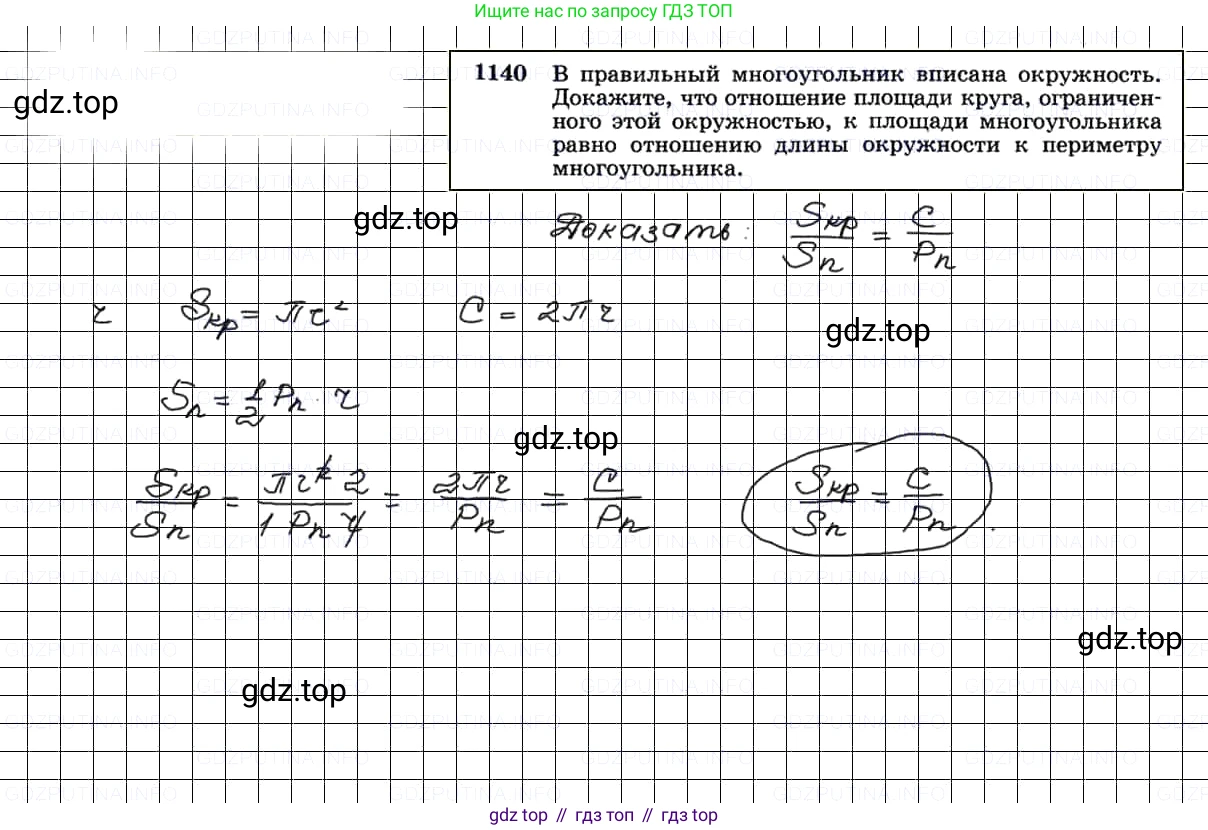 Ищите нас по запросу ГДЗ ТОП
1140 В правильный многоугольник вписана окружность.
Докажите, что отношение площади круга, ограничен-
ного этой окружностью, к площади многоугольника
равно отношению длины окружности к периметру
многоугольника.
gdz.top
gdz.top
Доказать: Sкр/Sn = C/Pn
r Sкр = πr² C = 2πr
gdz.top
Sn = 1/2 Pn · r
gdz.top
Sкр/Sn = πr² 2/1 Pn r = 2πr/Pn = C/Pn Sкр/Sn = C/Pn.
gdz.top
gdz.top
gdz top // гдз топ // gdz top
GDZPUTINA.INFO